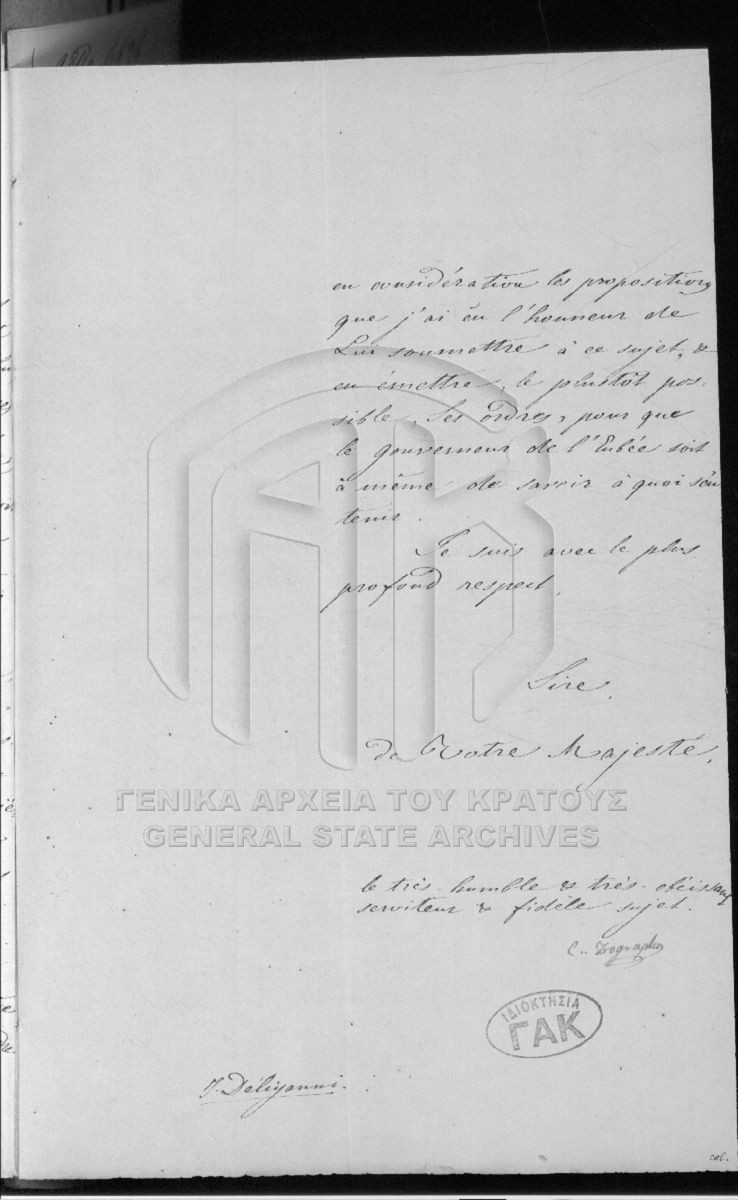 en considération les propositions
que j'ai eu l'honneur de
Lui soumettre à ce sujet, &
en émettre, le plustôt pos-
sible, Ses ordres, pour que
le gouverneur de l'Eubée soit
à même de savoir à quoi s'en
tenir.
Je suis avec le plus
profond respect,
Sire,
de Votre Majesté,
ΓΕΝΙΚΑ ΑΡΧΕΙΑ ΤΟΥ ΚΡΑΤΟΥΣ
GENERAL STATE ARCHIVES
le très-humble & très-obéissant
serviteur & fidèle sujet.
C.. Zographos
ΙΔΙΟΚΤΗΣΙΑ
ΓΑΚ
Déliyanni.
col.